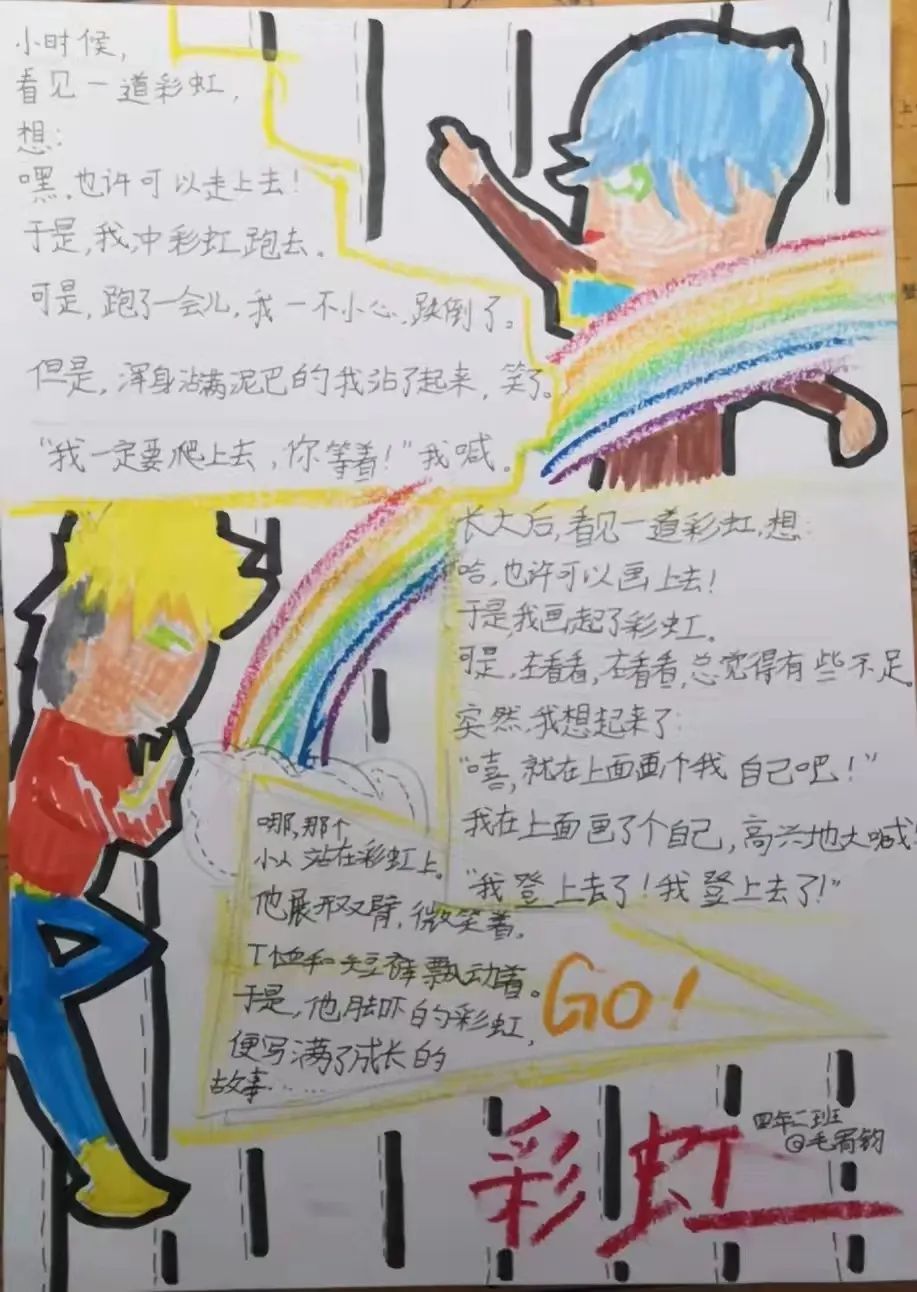 小时候，
看见一道彩虹，
想：
嘿，也许可以走上去！
于是，我冲彩虹跑去。
可是，跑了一会儿，我一不小心，跌倒了。
但是，浑身沾满泥巴的我沾了起来，笑了。
“我一定要爬上去，你等着！”我喊。
长大后，看见一道彩虹，想：
哈，也许可以画上去！
于是，我画起了彩虹。
可是，在看看，在看看，总觉得有些不足。
突然，我想起来了：
“嘻，就在上面画个我自己吧！”
我在上面画了个自己，高兴地大喊：
“我登上去了！我登上去了！”
哪，那个
小人站在彩虹上。
他展开双臂，微笑着。
T恤和短裤飘动着。
于是，他脚下的彩虹，
便写满了成长的
故事……
GO！
彩虹
四年二班
@毛